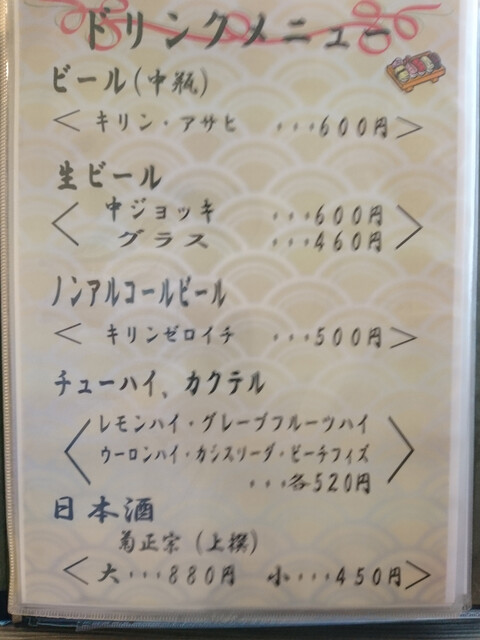 ドリンクメニュー
ビール(中瓶)
< キリン・アサヒ ・・・600円 >
生ビール
中ジョッキ ・・・600円
グラス ・・・460円
ノンアルコールビール
< キリンゼロイチ ・・・500円 >
チューハイ、カクテル
レモンハイ・グレープフルーツハイ
ウーロンハイ・カシスソーダ・ピーチフィズ
・・・各520円
日本酒
菊正宗(上撰)
< 大・・・880円 小・・・450円 >